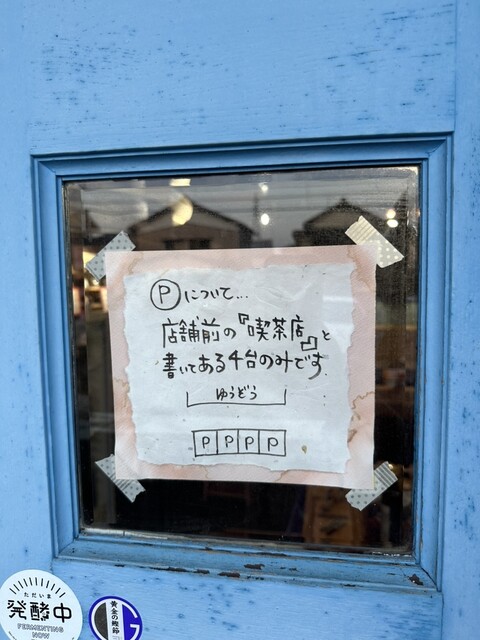 Pについて…
店舗前の『喫茶店』と
書いてある4台のみです
ゆうどう
P P P P
ただいま
発酵中
FERMENTING
NOW
黄金の鰹節